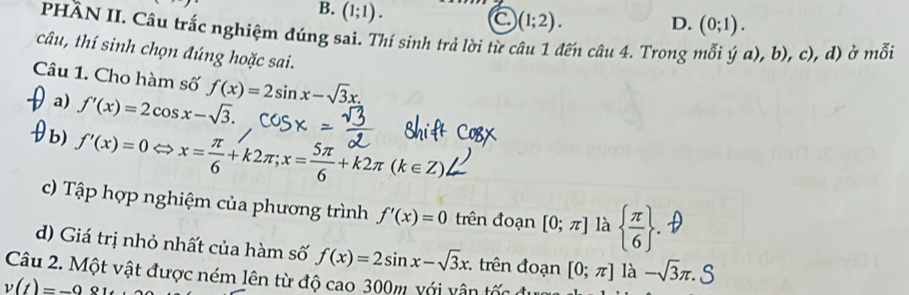 B. (1;1). C. (1;2). D. (0;1).
PHẦN II. Câu trắc nghiệm đúng sai. Thí sinh trả lời từ câu 1 đến câu 4. Trong mỗi ý a), b), c), d) ở mỗi
câu, thí sinh chọn đúng hoặc sai.
Câu 1. Cho hàm số f(x) = 2sin x − √3x.
Đ a) f'(x) = 2cos x − √3. cosx = √3/2 shift cosx
Đ b) f'(x) = 0 ⇔ x = π/6 + k2π; x = 5π/6 + k2π (k ∈ Z)
c) Tập hợp nghiệm của phương trình f'(x) = 0 trên đoạn [0; π] là {π/6}. Đ
d) Giá trị nhỏ nhất của hàm số f(x) = 2sin x − √3x. trên đoạn [0; π] là −√3π. S
Câu 2. Một vật được ném lên từ độ cao 300m với vận tốc
v(t) = −9,81t